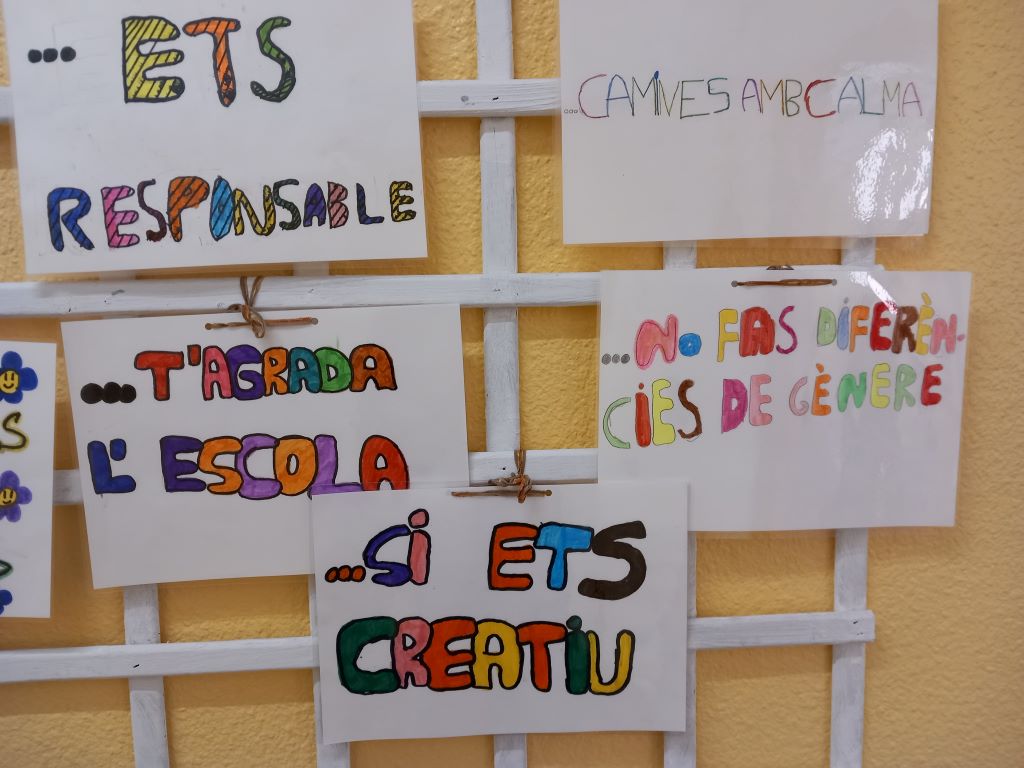 ... ETS
RESPONSABLE
...CAMINES AMB CALMA
...T'AGRADA
L'ESCOLA
...NO FAS DIFERÈN-
CIES DE GÈNERE
...SI ETS
CREATIU
S